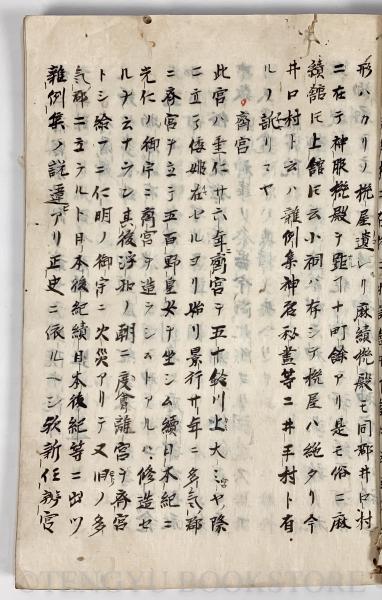 形ハカリノ機屋遺レリ麻績機殿モ同郡井口村
ニ在テ神服機殿ヲ距ヿ十町餘アリ是モ俗ニ麻
績舘ﾄﾓ上舘ﾄﾓ云小祠ハ存シテ機屋ハ絶タリ今
井口村ト云ハ雜例集神名秘畵等ニ井手村ト有
ルノ訛リニヤ
齋宮
此宮ハ垂仁廿六年齋宮ヲ五十鈴川上大宮ノ際
ニ立テ倭姫在セルヨリ始リ景行廿年ニ多気郡
ニ齋宮ヲ立テ五百野皇女ヲ坐シム續日本紀ニ
光仁ノ御宇ニ齋宮ヲ造ラシムトアルハ修造セ
ルヲ云ナラン其後淳和ノ朝ニ度會離宮ヲ齋宮
トシ給フニ仁明ノ御宇ニ火災アリテ又旧ノ多
気郡ニ立ラルヿ日本後紀續日本後紀等ニ出ツ
雜例集ノ説違アリ正史ニ依ルヘシ 新任辨官
©TENGYU BOOKSTORE